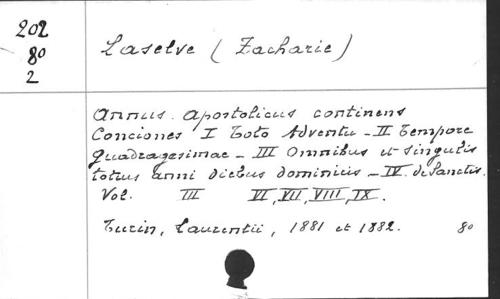 202
80
2
Laselve (Zacharie)
Annus Apostolicus continens
Conciones I Toto Adventu - II Tempore
Quadragesimae - III Omnibus et singulis
totius anni diebus dominicis - IV. de Sanctis.
Vol. III VI, VII, VIII, IX.
Turin, Laurentii, 1881 et 1882. 80